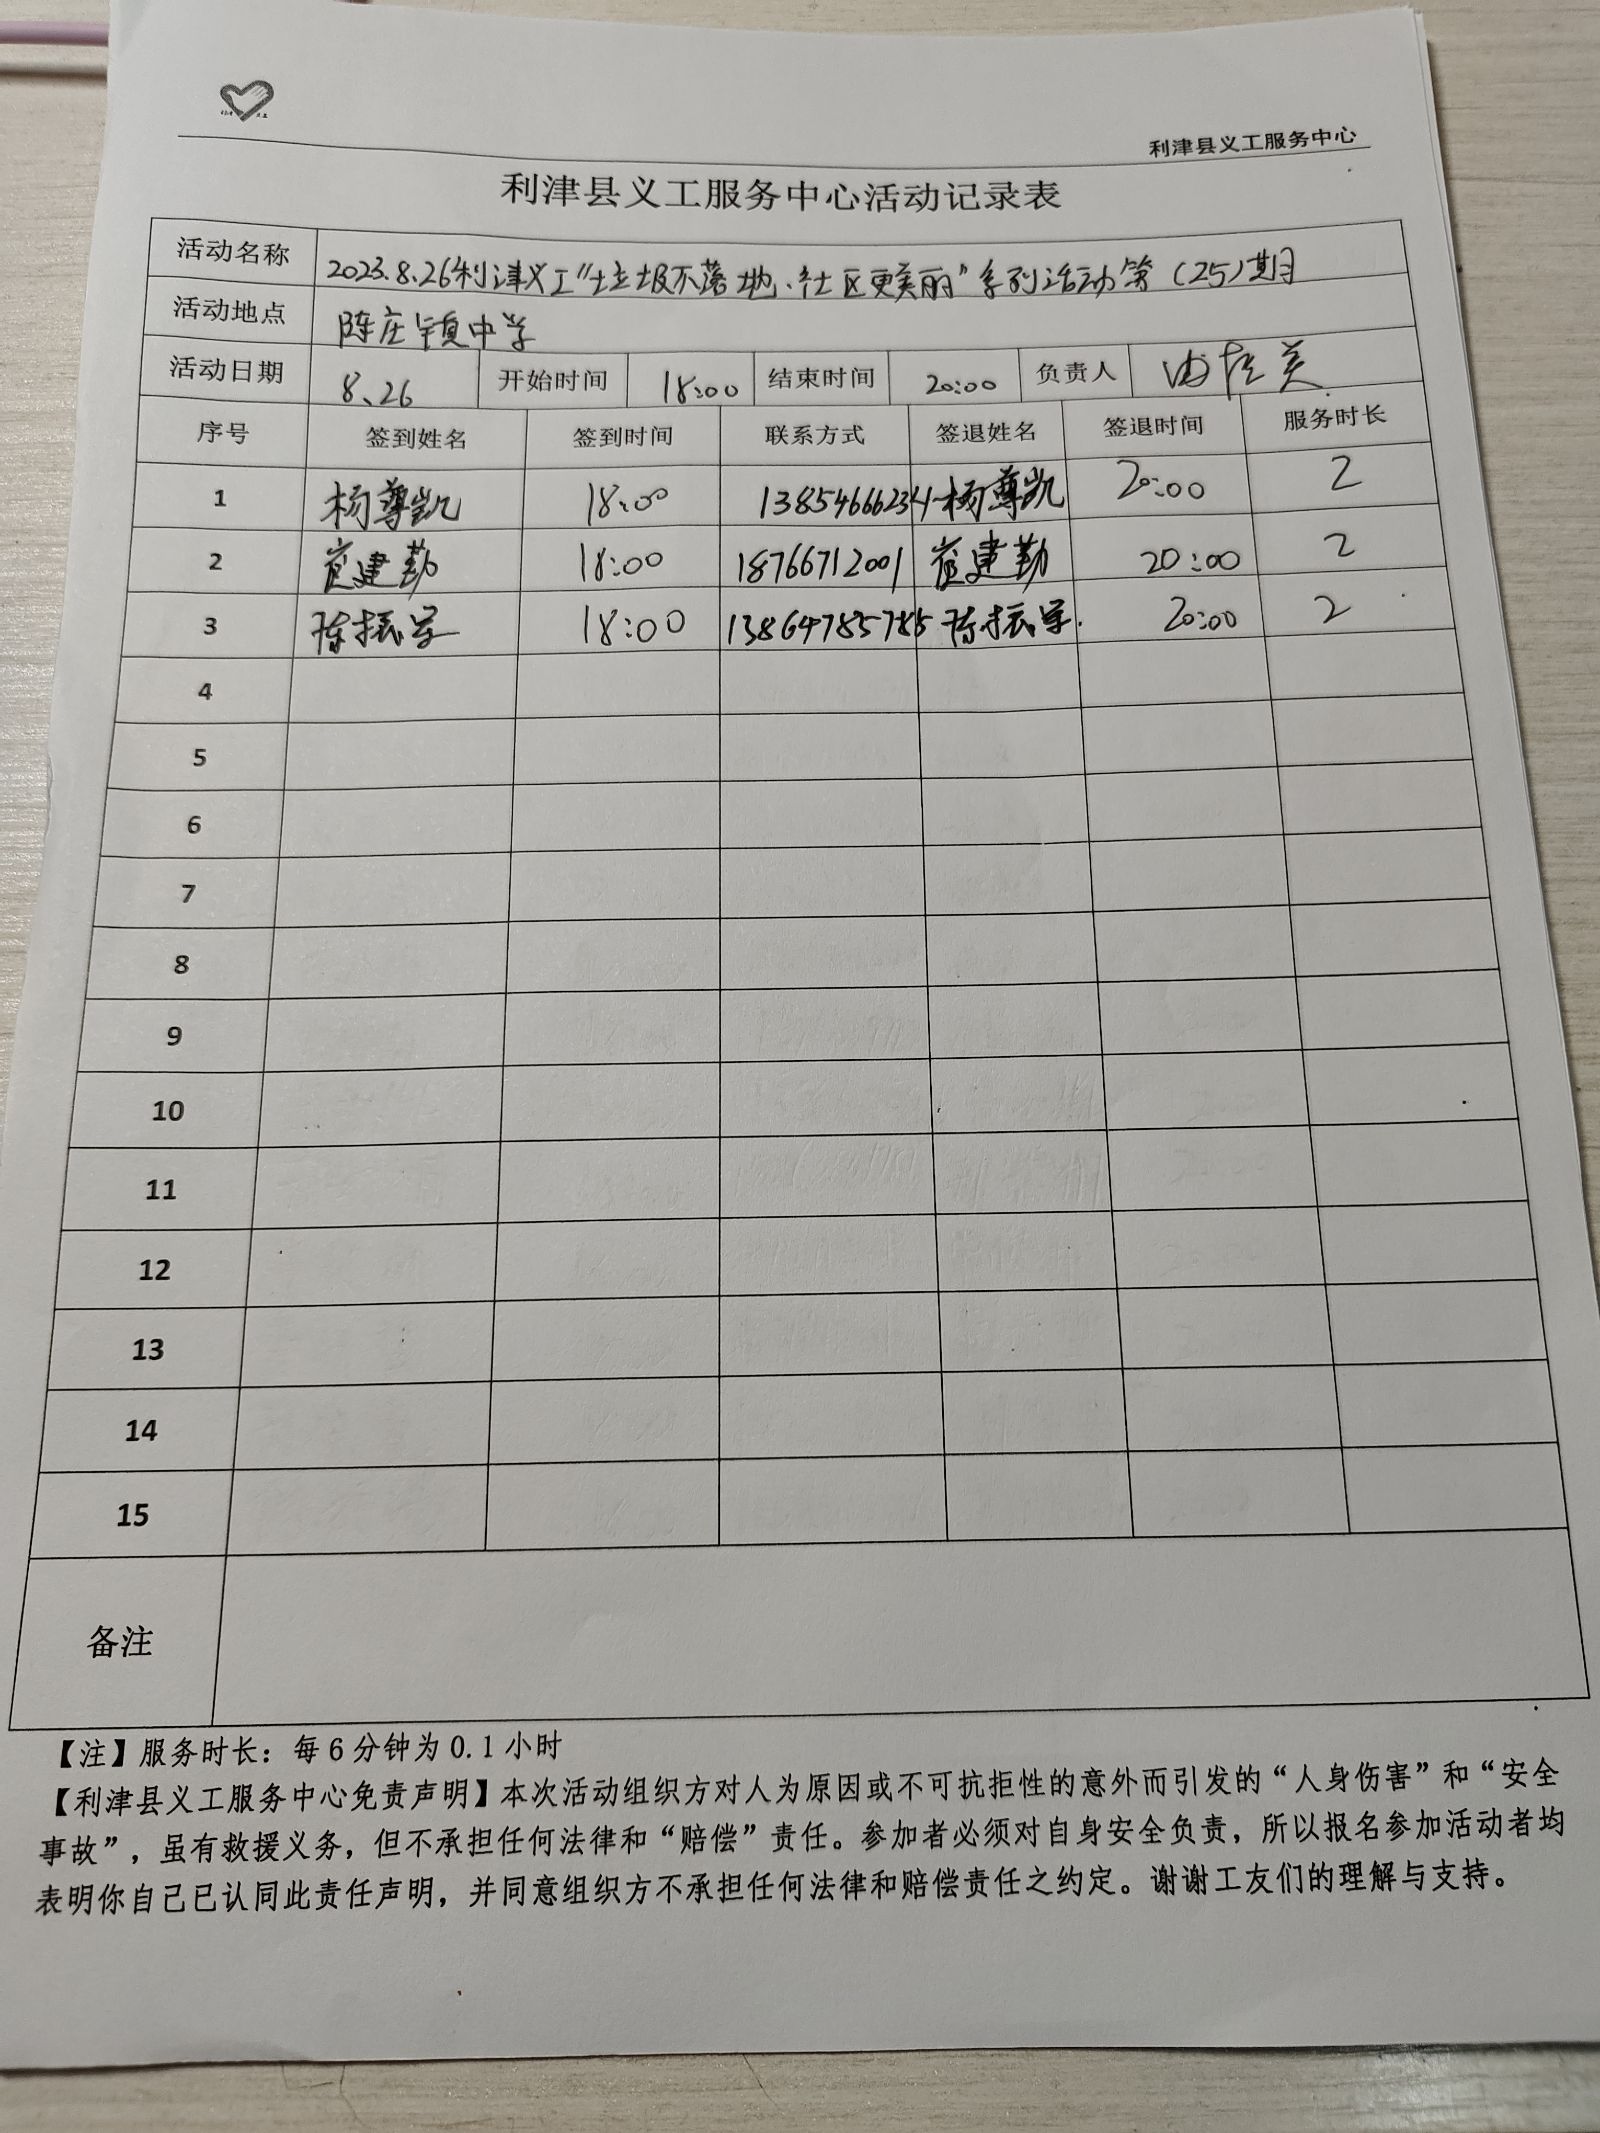 利津县义工服务中心
利津县义工服务中心活动记录表
活动名称 2023.8.26利津义工“垃圾不落地、社区更美丽”系列活动第(25)期
活动地点 陈庄镇中学
活动日期 8、26 开始时间 18:00 结束时间 20:00 负责人
序号 签到姓名 签到时间 联系方式 签退姓名 签退时间 服务时长
1 杨尊凯 18:00 13854666234 杨尊凯 20:00 2
2 崔建勤 18:00 18766712001 崔建勤 20:00 2
3 陈振学 18:00 陈振学 20:00 2
4
5
6
7
8
9
10
11
12
13
14
15
备注
【注】服务时长：每6分钟为0.1小时
【利津县义工服务中心免责声明】本次活动组织方对人为原因或不可抗拒性的意外而引发的“人身伤害”和“安全
事故”，虽有救援义务，但不承担任何法律和“赔偿”责任。参加者必须对自身安全负责，所以报名参加活动者均
表明你自己已认同此责任声明，并同意组织方不承担任何法律和赔偿责任之约定。谢谢工友们的理解与支持。